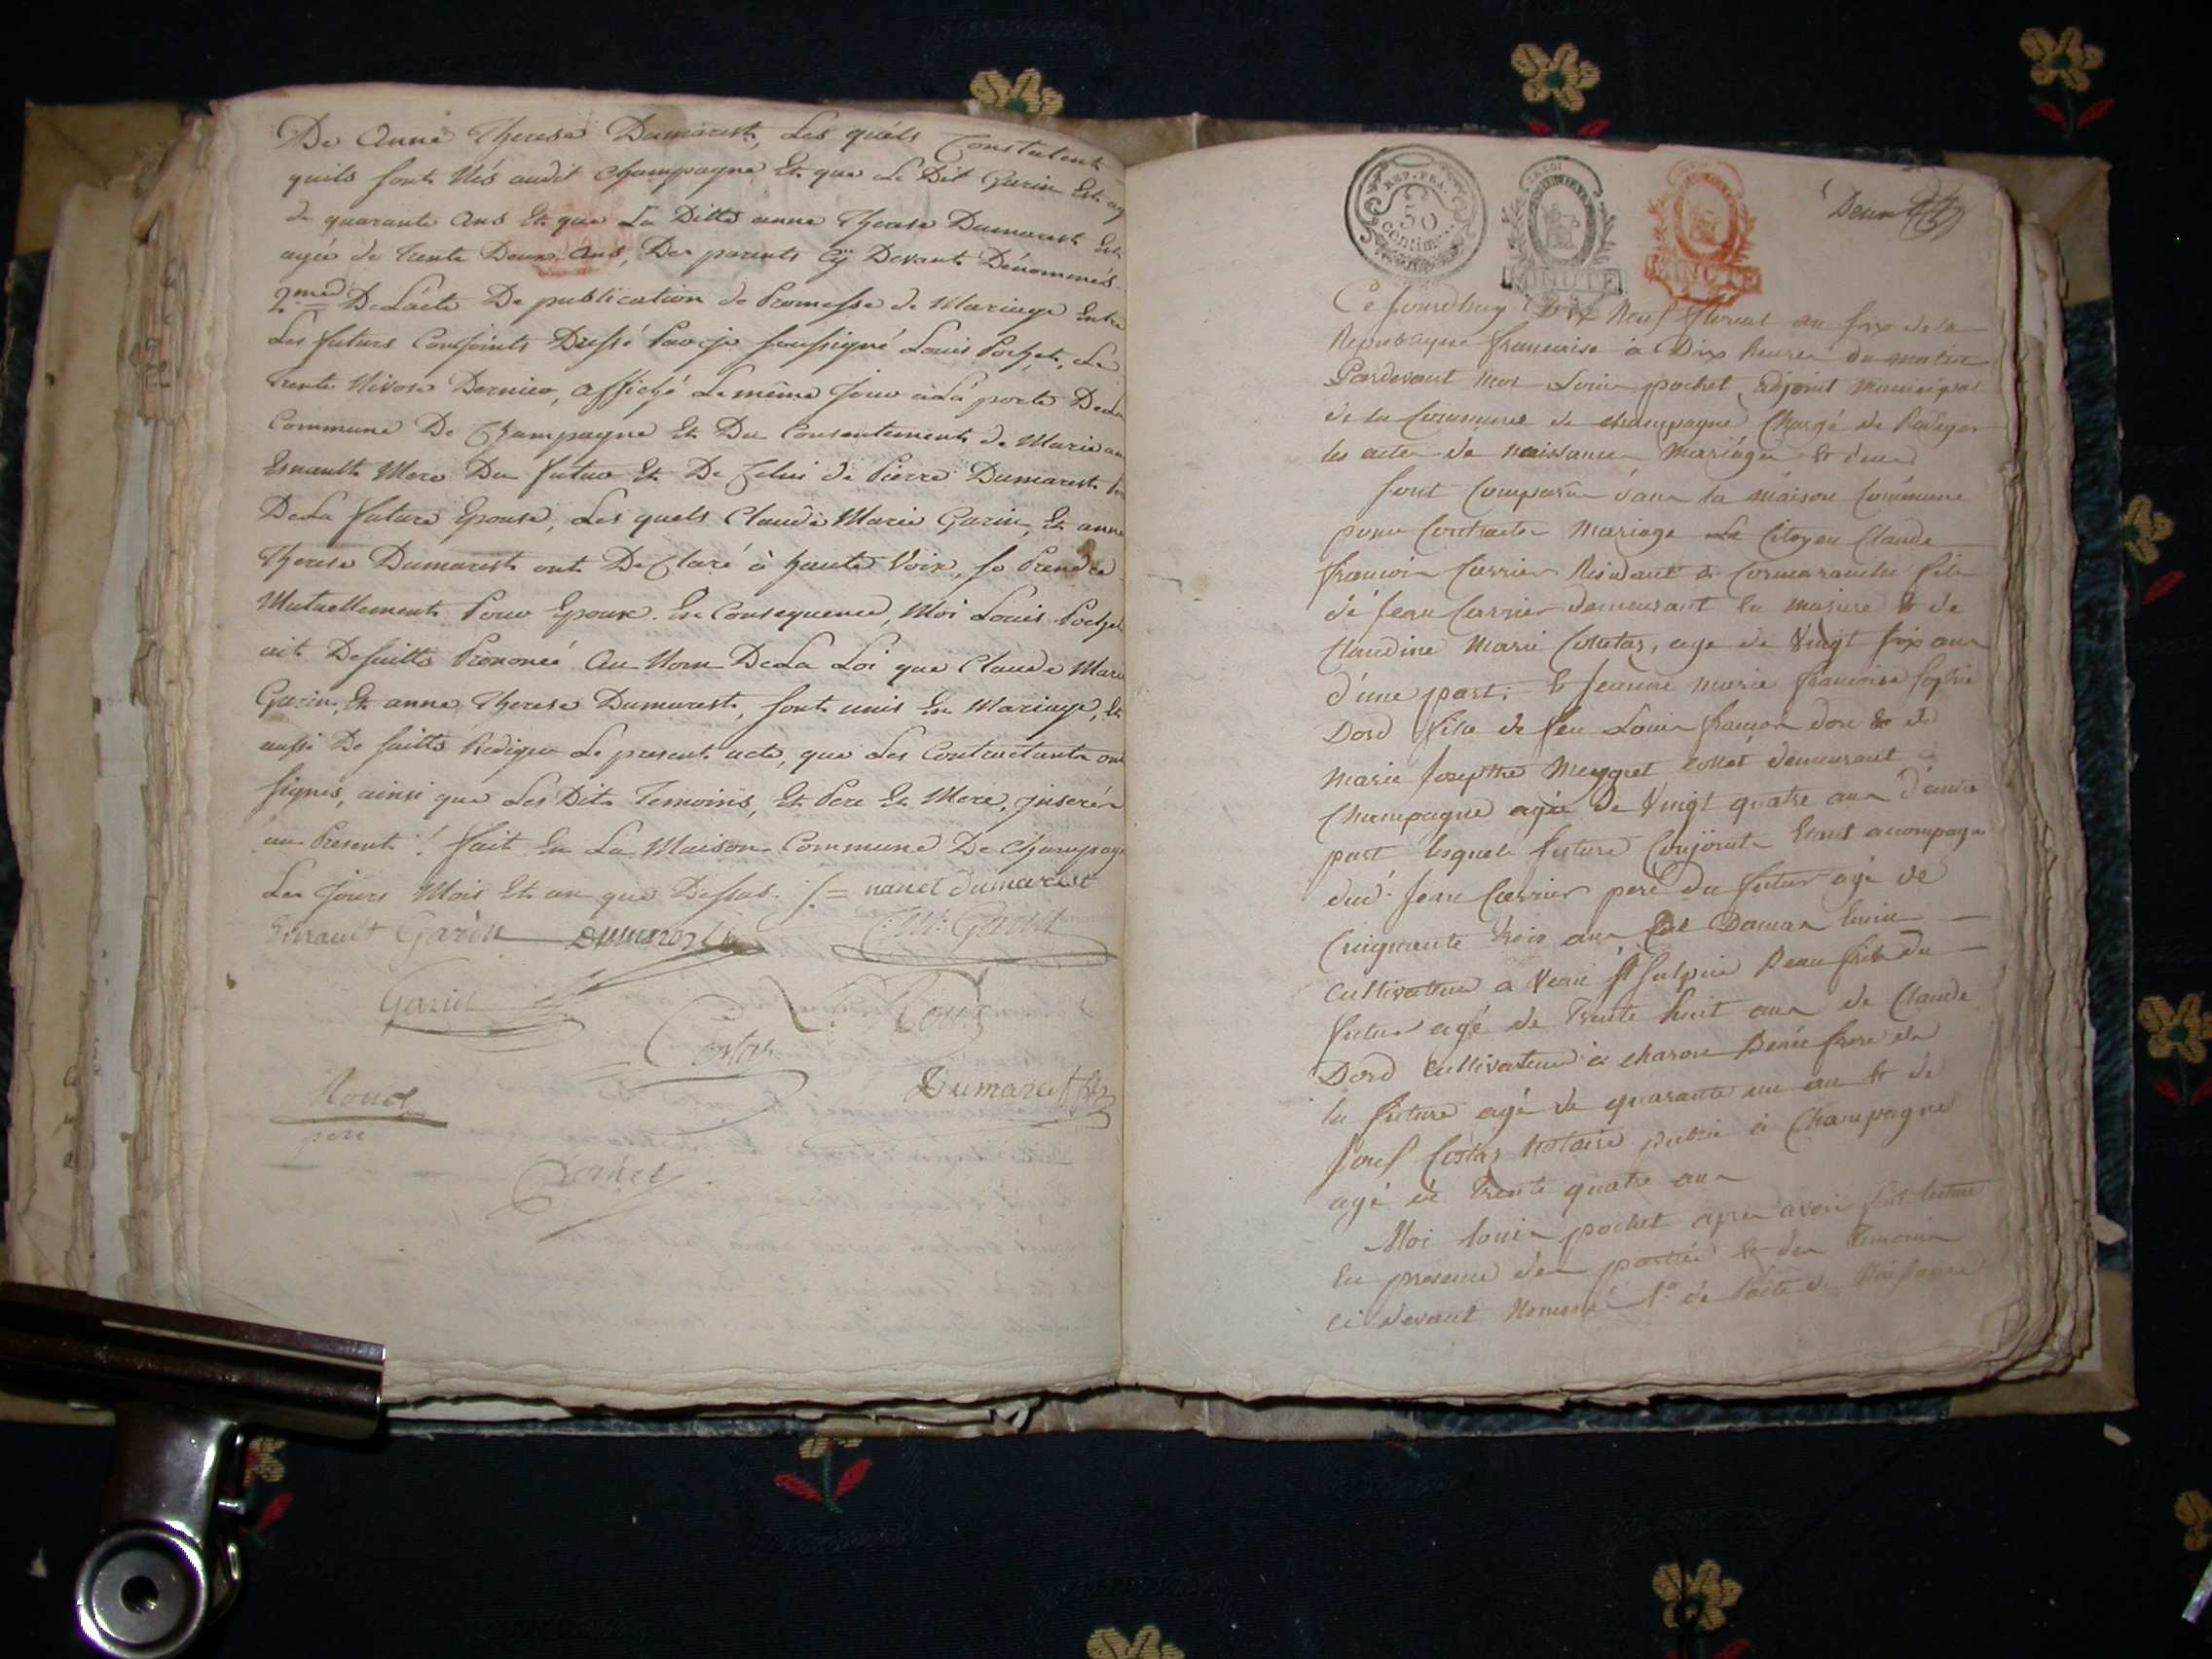 De Anne Therese Dumarest, Les quels Constatent
quils sont Nés audit Champagne Et que Le Dit Garin Est ag
de quarante Ans Et que La Ditte anne Therese Dumarest Est
agée de trente Deux Ans, Des parents Cy Devant Dénommés.
2.me De Lacte De publication de Promesse de Mariage Entre
Les futurs Conjoints Dressé Par je soussigné Louis Pochet, Le
trente Nivose Dernier, affiché Le même Jour à La porte De La
Commune De Champagne Et Du Consentement de Marie an
Esnault Mere Du futur Et De Celui de Pierre Dumarest Per
De La future Epouse, Les quels Claude Marie Garin, Et anne
Therese Dumarest ont Declaré à haute Voix, se Prendre
Mutuellement Pour Epoux. En Consequence, Moi Louis Pochet
ait Desuitte Prononcé Au Nom De La Loi que Claude Mari
Garin, Et anne Therese Dumarest, sont unis En Mariage, Et
aussi De suitte Rediger Le present acte, que Les Contractants ont
signés, ainsi que Les Dits Temoins, Et Pere Et Mere, inserés
au Present. fait En La Maison Commune De Champagn
Les Jours Mois Et an que Dessus. nanet dumarest
Esnault Garin Dumarest C. M. Garin
Garin
Costaz Roux
Roux Dumarest fils
pere
Pochet
REP. FRA.
50
centim
LA LOI
MINUTE
MINUTE
Deux
Ce Jourdhuy Dix Neuf floreal an six de la
Republique francaise à Dix heures du matin
Pardevant moi Louis pochet, adjoint municipal
de la Commune de champagne Chargé de Rediger
les actes de naissances, Mariages et deces
sont Comparus dans la maison Commune
pour Contracter mariage Le Citoyen Claude
francois Carrier Residant à Cormaranche fils
de Jean Carrier demeurant la masure et de
Claudine Marie Costaz, age de Vingt six ans
d'une part; Et Jeanne marie francoise sophie
Dord fille de feu Louis francois dord et de
marie Josepthe Meygret collet demeurant à
Champagne agée de Vingt quatre ans d'autre
part lesquels futurs Conjoints Etant acompagn
dud. Jean Carrier pere du futur agé de
Cinquante trois ans, de Damas
Cultivateur a Vieu st sulpice Beau frere du
futur agé de Trente huit ans de Claude
Dord Cultivateur à charon frere de
la future agé de quarante un an et de
Josef Costaz Notaire public à Champagne
agé de Trente quatre ans
Moi Louis pochet après avoir fait lecture
En presence des parties et des Temoins
ci devant Nommés 1.° de l'acte de Naissance